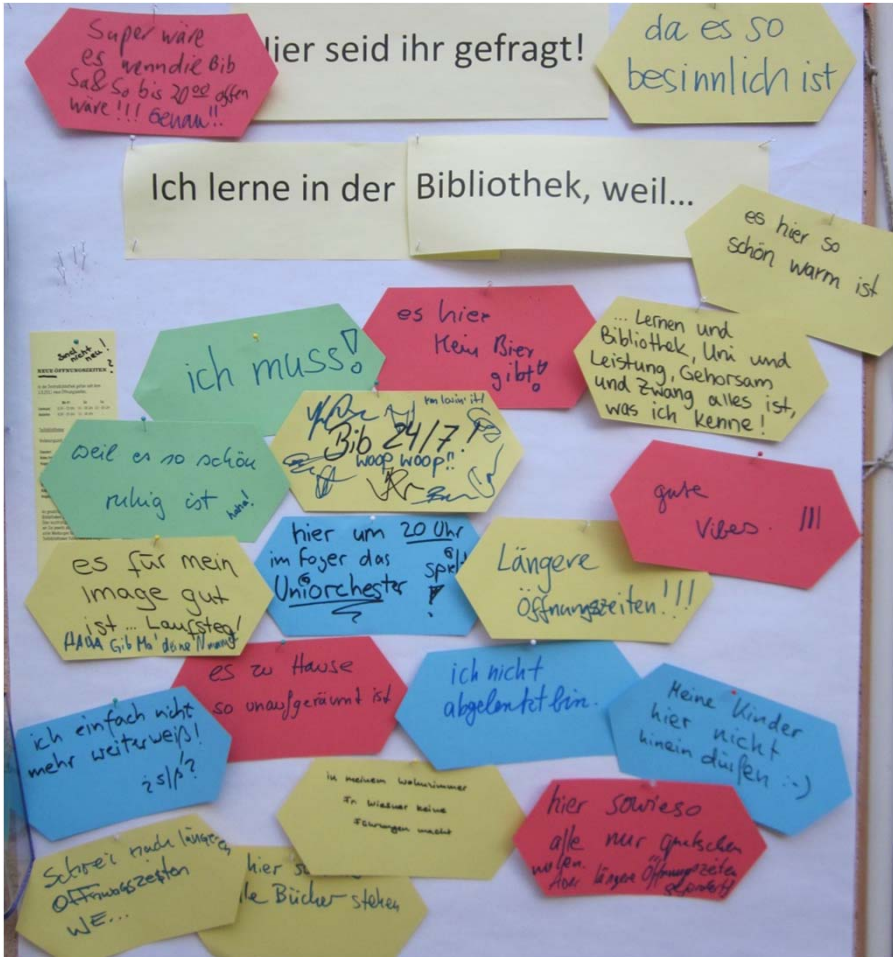 Super wäre
es wenn die Bib
Sa & So bis 20⁰⁰ offen
wäre!!! Genau!!
Hier seid ihr gefragt!
da es so
besinnlich ist
Ich lerne in der Bibliothek, weil...
es hier so
schön warm ist
NEUE ÖFFNUNGSZEITEN
ich muss!
es hier
kein Bier
gibt!
... Lernen und
Bibliothek, Uni und
Leistung, Gehorsam
und Zwang alles ist,
was ich kenne!
weil es so schön
ruhig ist haha!
I'm lovin' it!
Bib 24/7
woop woop!!
gute
Vibes. !!!
es für mein
Image gut
ist... Laufsteg!
HAHA Gib Ma' deine
hier um 20 Uhr
im Foyer das
Uniorchester spielt
Längere
Öffnungszeiten!!!
es zu Hause
so unaufgeräumt ist
ich nicht
abgelenkt bin.
Meine Kinder
hier nicht
hinein dürfen :-)
ich einfach nicht
mehr weiterweiß!
in meinem Wohnzimmer
Fr. Wiesner keine
Führungen macht
hier sowieso
alle nur quatschen
wollen.
längere Öffnungszeiten
Schrei nach längeren
Öffnungszeiten
WE...
hier
Bücher stehen